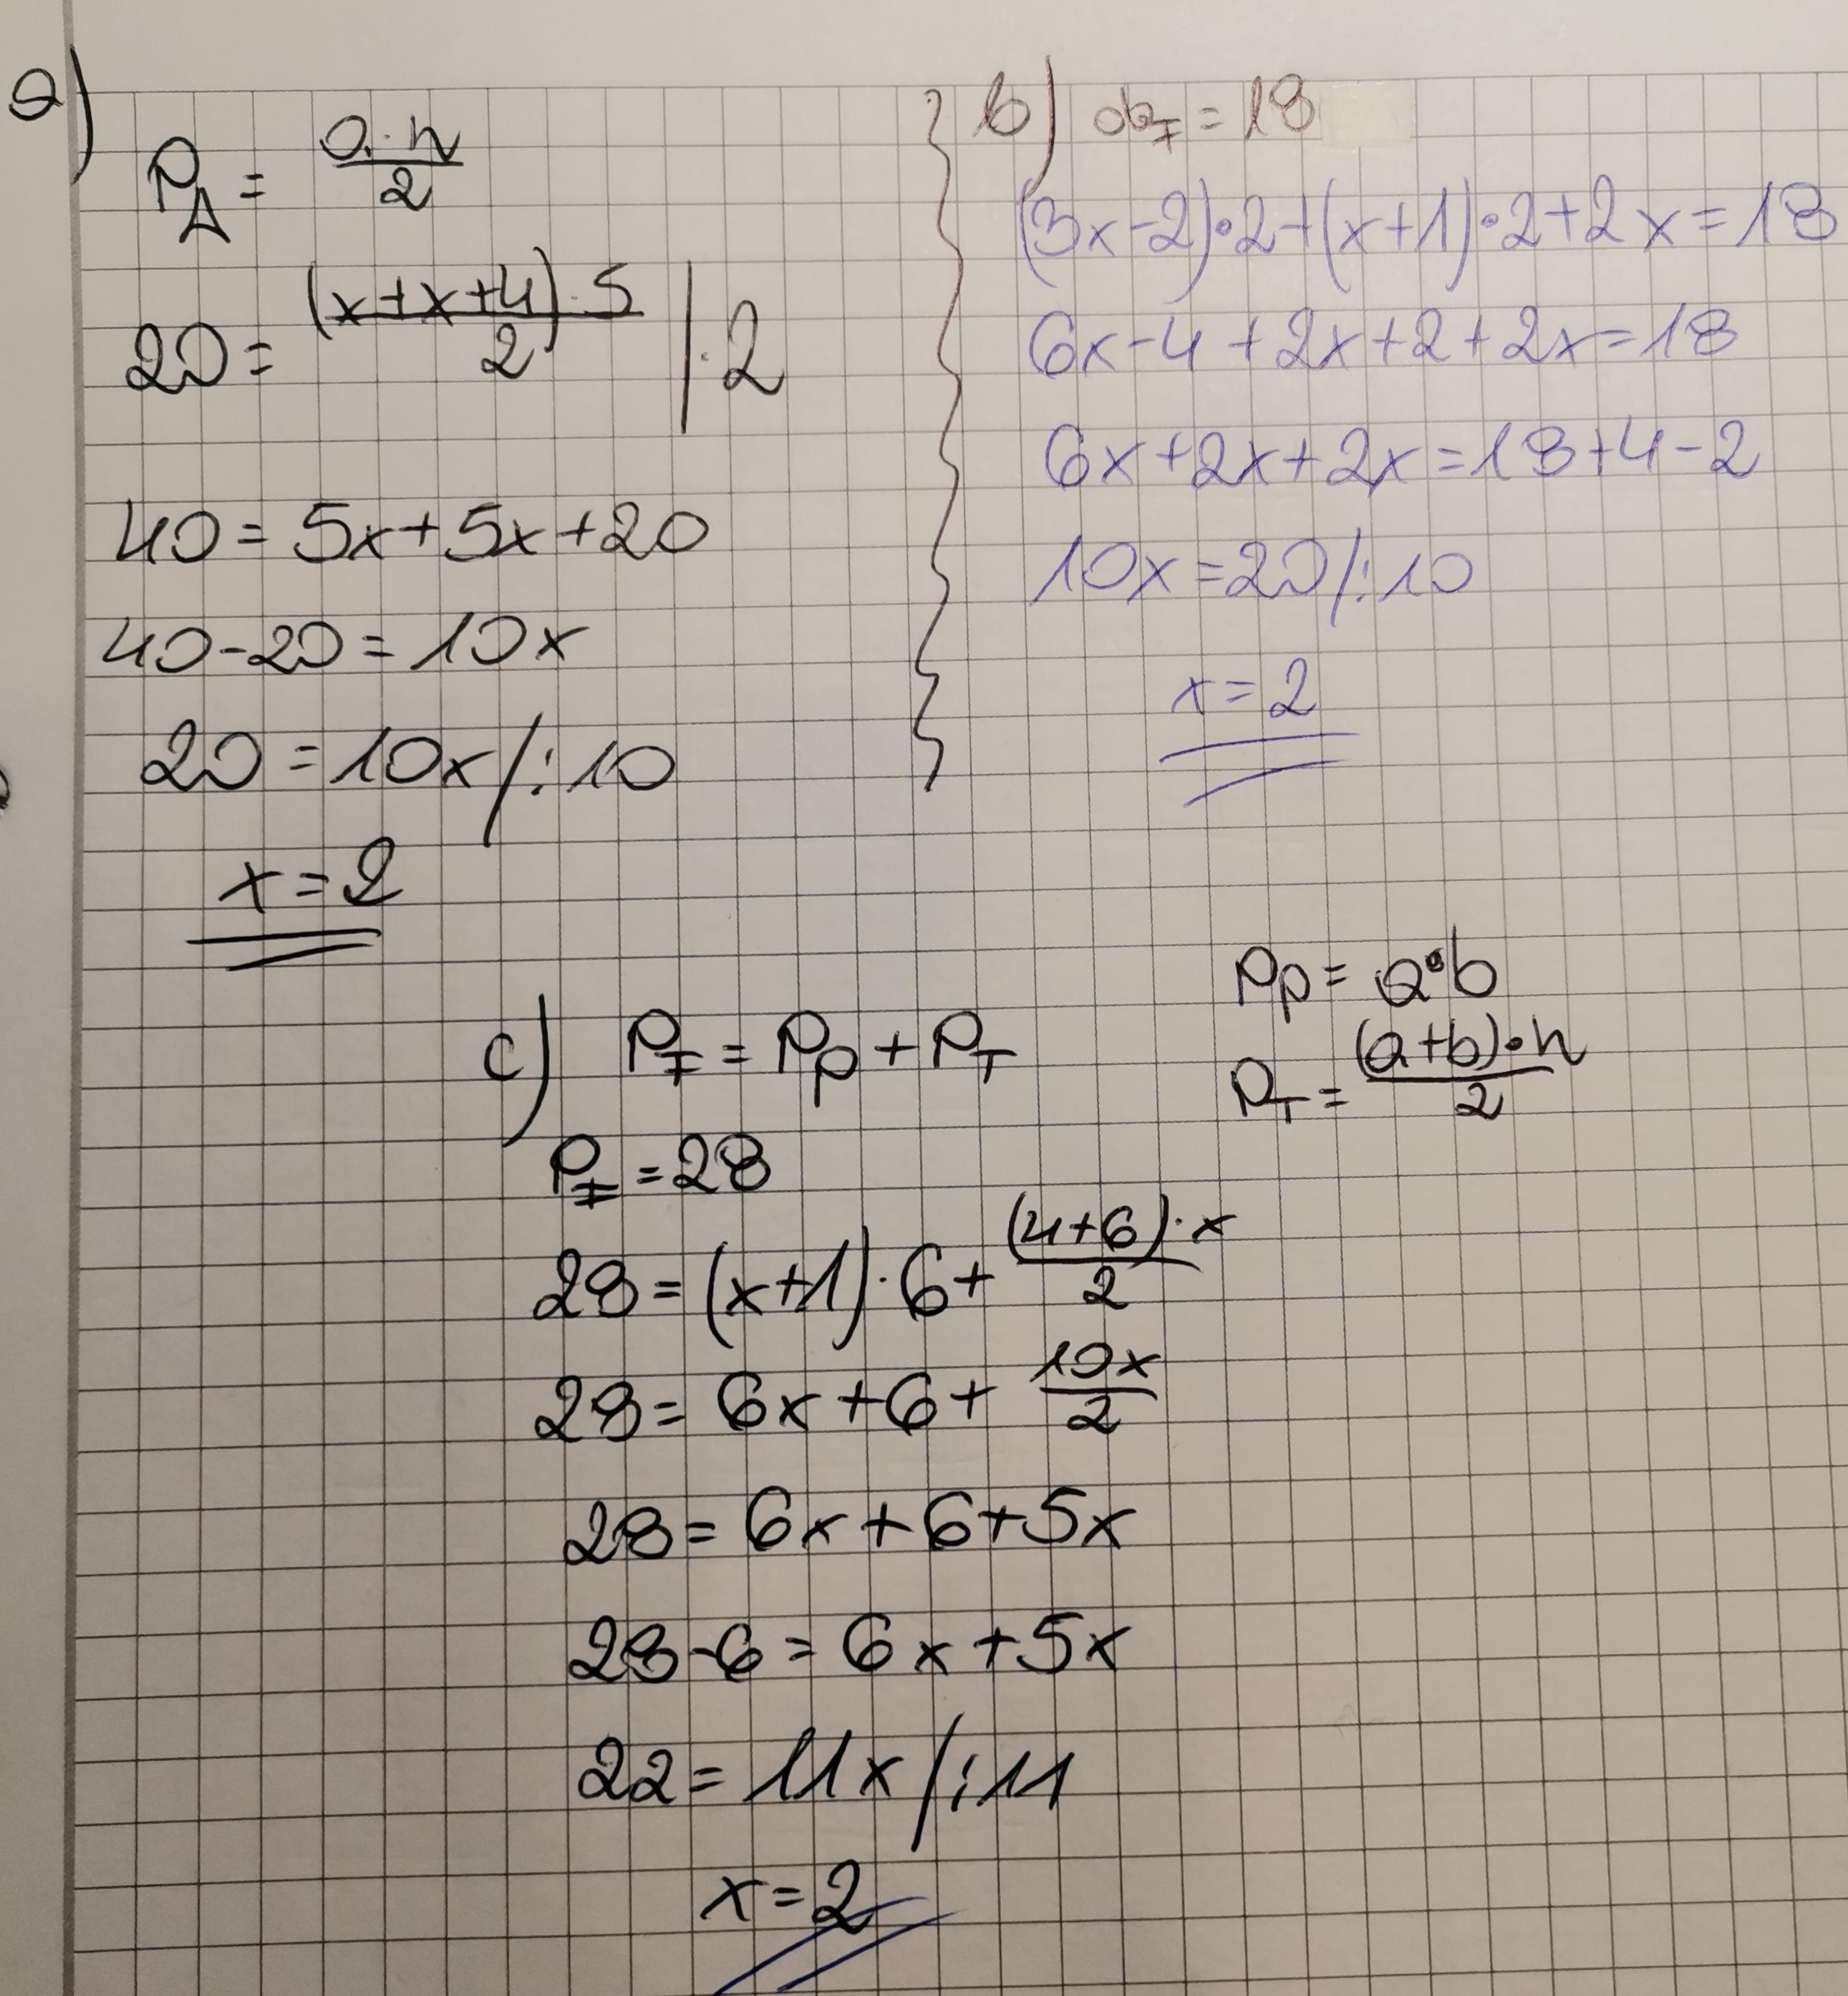 a)
P△ = a·h/2
20 = (x+x+4)·5/2 |·2
40 = 5x+5x+20
40-20 = 10x
20 = 10x /:10
x = 2
b) obF = 18
(3x-2)·2+(x+1)·2+2x=18
6x-4+2x+2+2x=18
6x+2x+2x=18+4-2
10x=20/:10
x=2
c) PF = Pp + PT
Pp = a·b
PT = (a+b)·h/2
PF = 28
28 = (x+1)·6+(4+6)·x/2
28 = 6x+6+10x/2
28 = 6x+6+5x
28-6 = 6x+5x
22 = 11x/:11
x=2